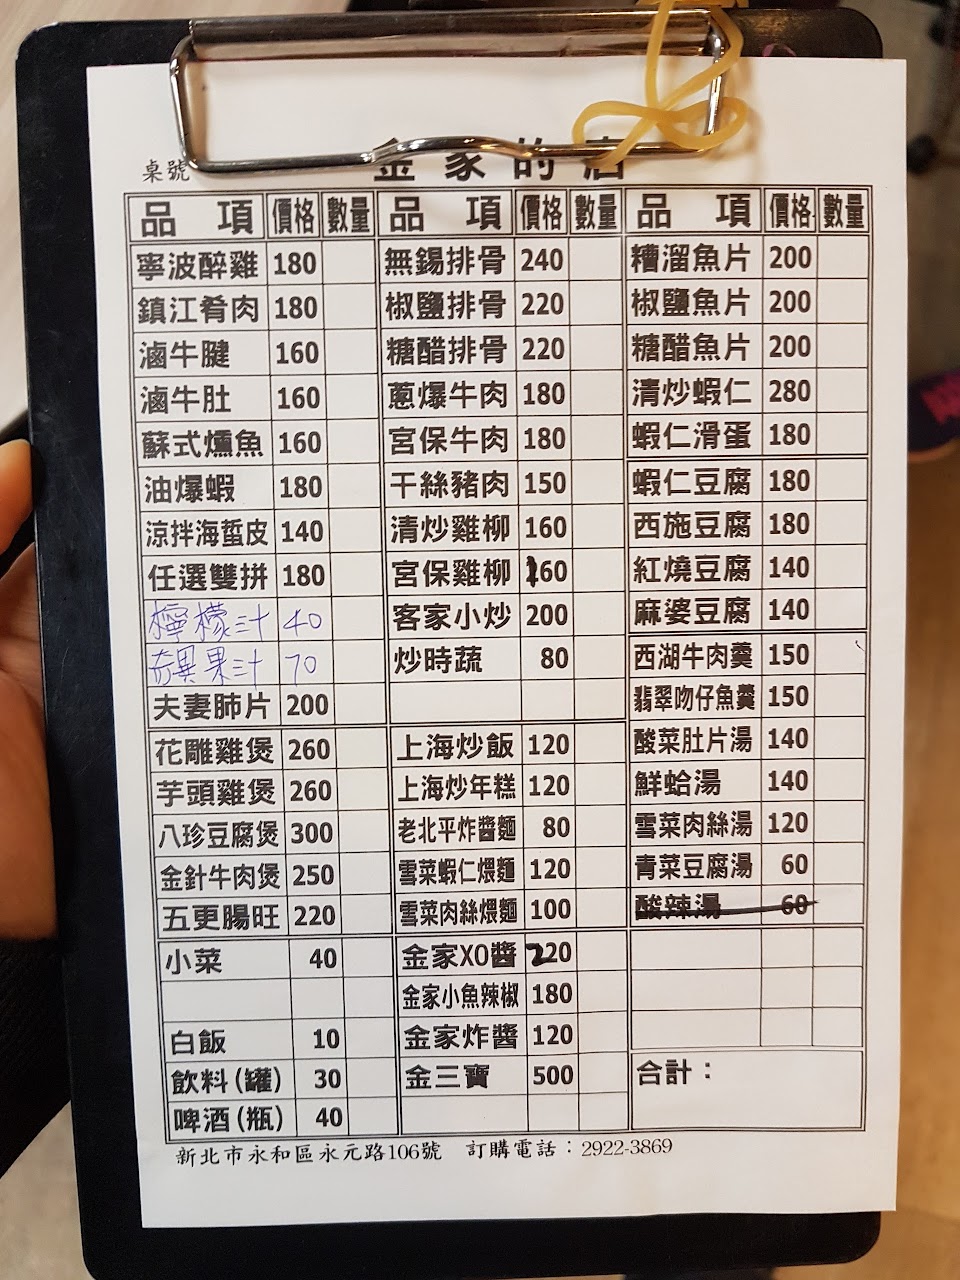 金家的店
桌號
品項 價格 數量 品項 價格 數量 品項 價格 數量
寧波醉雞 180 無錫排骨 240 糟溜魚片 200
鎮江肴肉 180 椒鹽排骨 220 椒鹽魚片 200
滷牛腱 160 糖醋排骨 220 糖醋魚片 200
滷牛肚 160 蔥爆牛肉 180 清炒蝦仁 280
蘇式燻魚 160 宮保牛肉 180 蝦仁滑蛋 180
油爆蝦 180 干絲豬肉 150 蝦仁豆腐 180
涼拌海蜇皮 140 清炒雞柳 160 西施豆腐 180
任選雙拼 180 宮保雞柳 160 紅燒豆腐 140
檸檬汁 40 客家小炒 200 麻婆豆腐 140
奇異果汁 70 炒時蔬 80 西湖牛肉羹 150
夫妻肺片 200 翡翠吻仔魚羹 150
花雕雞煲 260 上海炒飯 120 酸菜肚片湯 140
芋頭雞煲 260 上海炒年糕 120 鮮蛤湯 140
八珍豆腐煲 300 老北平炸醬麵 80 雪菜肉絲湯 120
金針牛肉煲 250 雪菜蝦仁煨麵 120 青菜豆腐湯 60
五更腸旺 220 雪菜肉絲煨麵 100 酸辣湯 60
小菜 40 金家XO醬 220
金家小魚辣椒 180
白飯 10 金家炸醬 120
飲料(罐) 30 金三寶 500 合計：
啤酒(瓶) 40
新北市永和區永元路106號 訂購電話：2922-3869